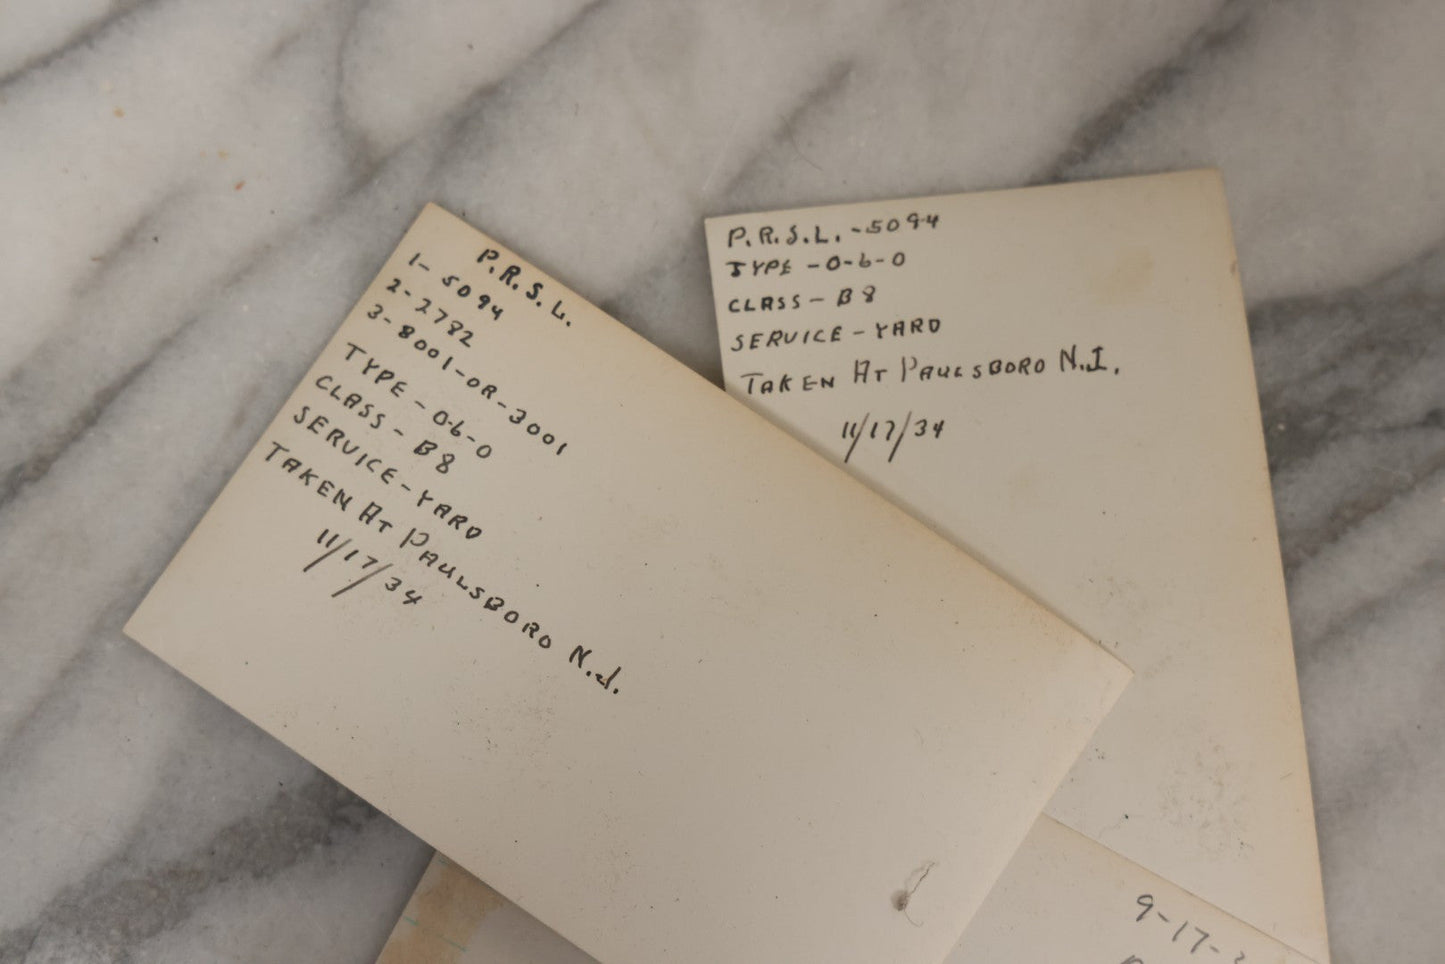 P.R.S.L.
1- 5094
2- 2782
3- 8001-OR-3001
TYPE - 0-6-0
CLASS - B8
SERVICE - YARD
TAKEN AT PAULSBORO N.J.
11/17/34
P.R.S.L. - 5094
TYPE - 0-6-0
CLASS - B8
SERVICE - YARD
TAKEN AT PAULSBORO N.J.
11/17/34
9-17-